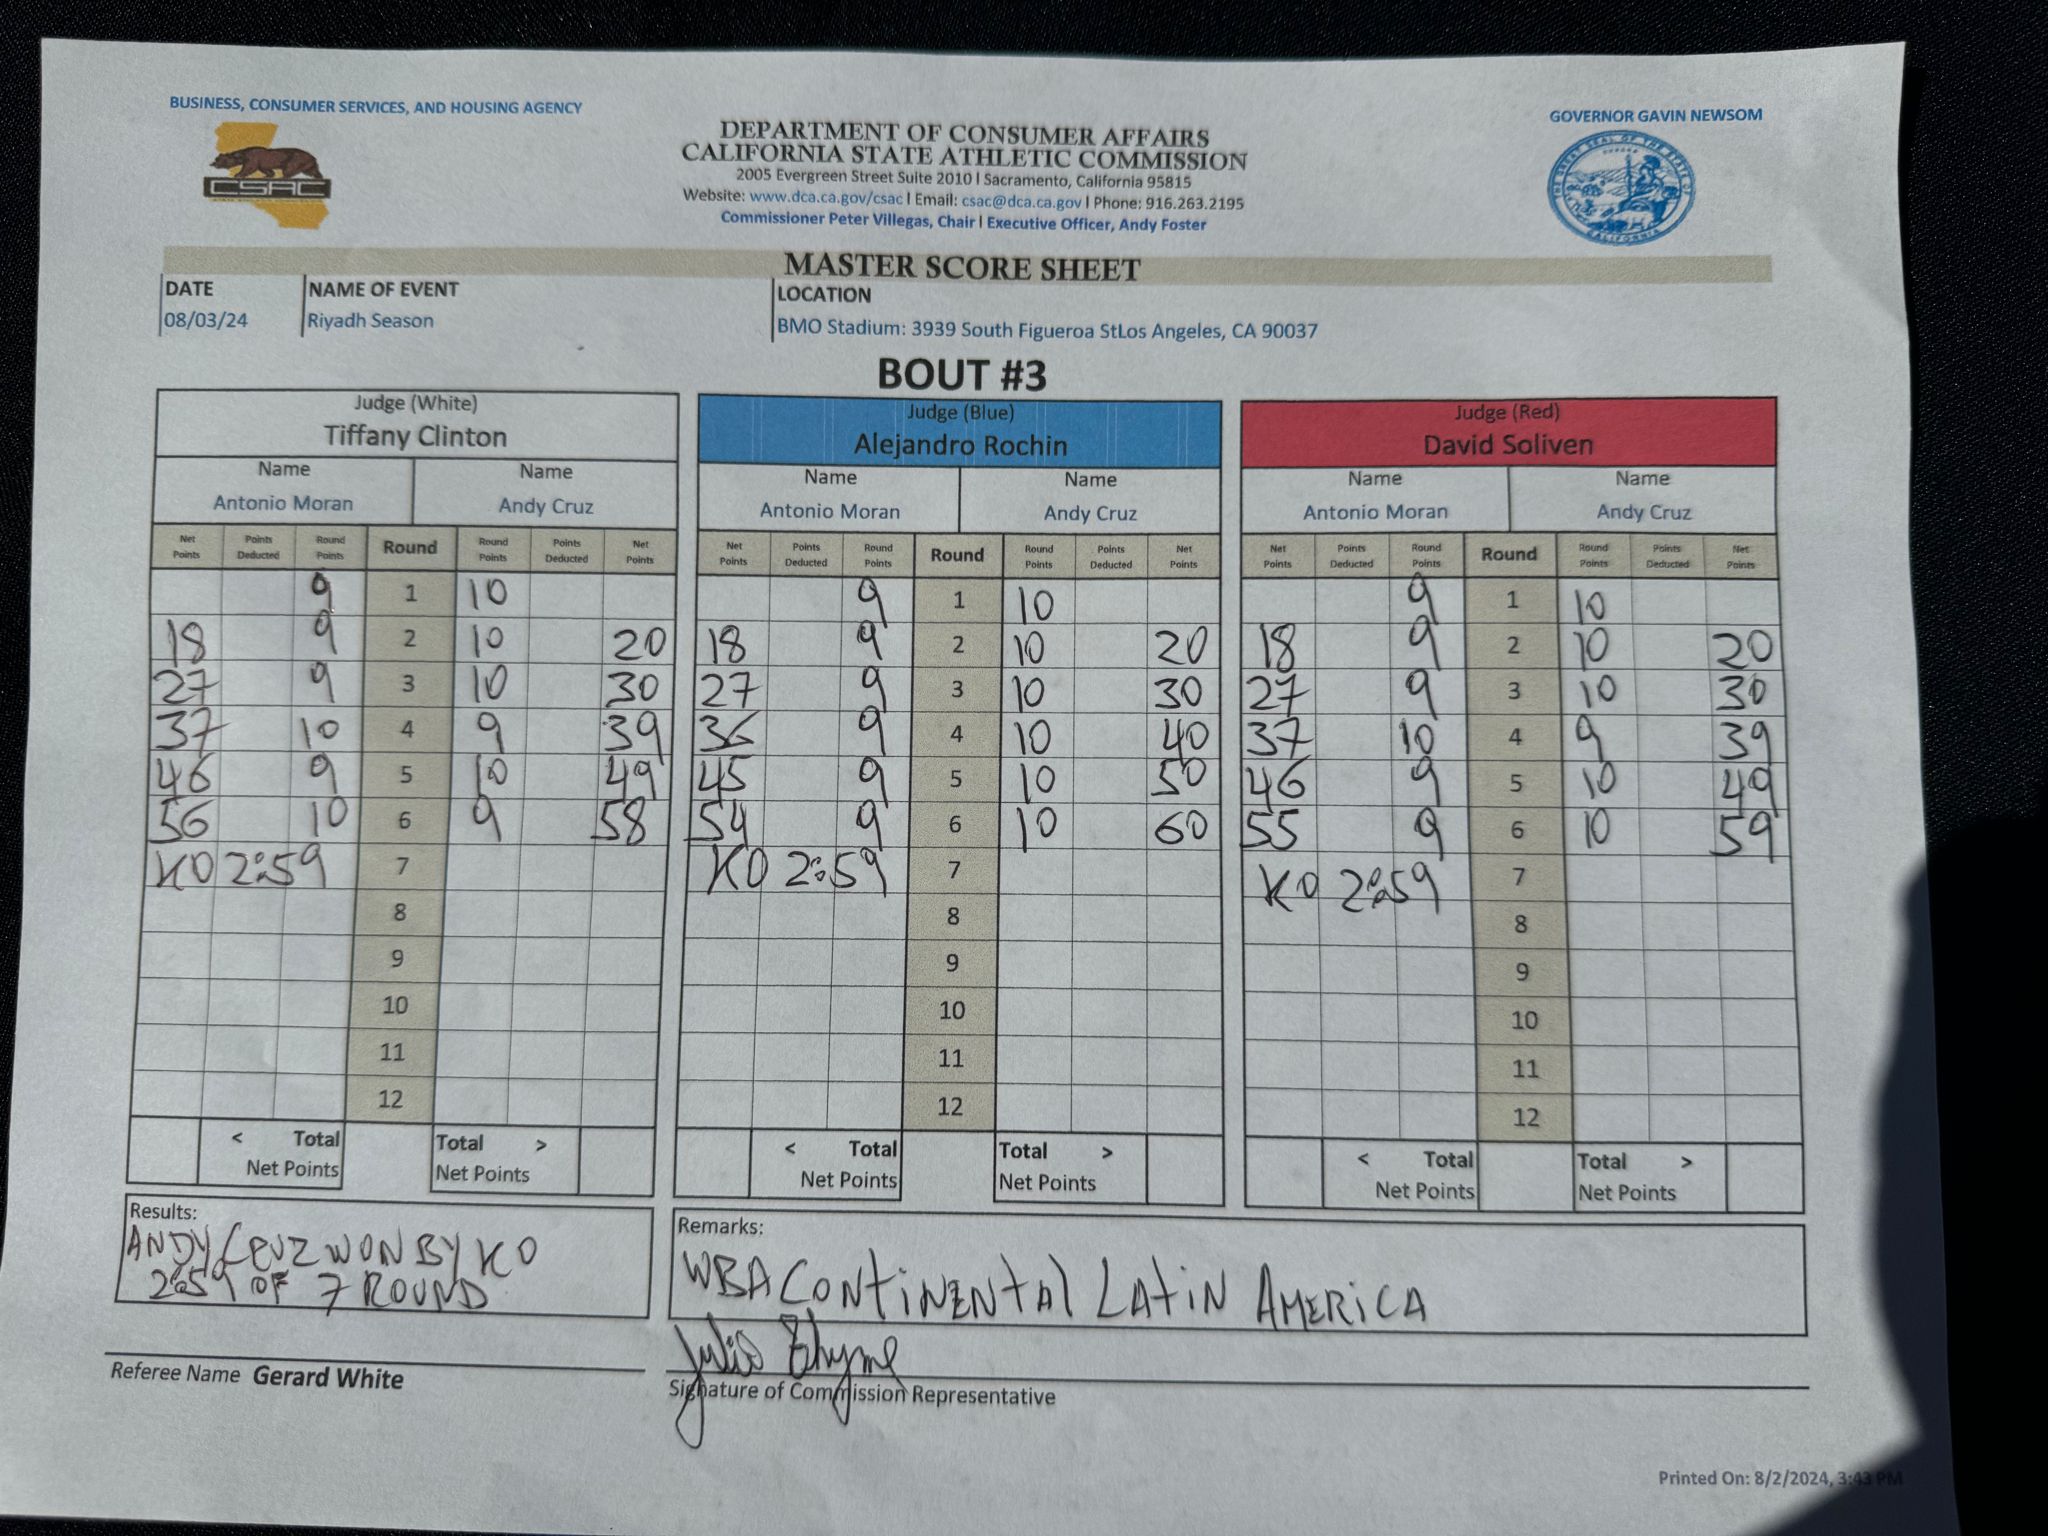 BUSINESS, CONSUMER SERVICES, AND HOUSING AGENCY
GOVERNOR GAVIN NEWSOM
CSAC
DEPARTMENT OF CONSUMER AFFAIRS
CALIFORNIA STATE ATHLETIC COMMISSION
2005 Evergreen Street Suite 2010 | Sacramento, California 95815
Website: www.dca.ca.gov/csac | Email: csac@dca.ca.gov | Phone: 916.263.2195
Commissioner Peter Villegas, Chair | Executive Officer, Andy Foster
MASTER SCORE SHEET
DATE NAME OF EVENT LOCATION
08/03/24 Riyadh Season BMO Stadium: 3939 South Figueroa StLos Angeles, CA 90037
BOUT #3
Judge (White) Judge (Blue) Judge (Red)
Tiffany Clinton Alejandro Rochin David Soliven
Name Name Name Name Name Name
Antonio Moran Andy Cruz Antonio Moran Andy Cruz Antonio Moran Andy Cruz
Net Points Points Deducted Round Points Round Round Points Points Deducted Net Points Net Points Points Deducted Round Points Round Round Points Points Deducted Net Points Net Points Points Deducted Round Points Round Round Points Points Deducted Net Points
9 1 10 9 1 10 9 1 10
18 9 2 10 20 18 9 2 10 20 18 9 2 10 20
27 9 3 10 30 27 9 3 10 30 27 9 3 10 30
37 10 4 9 39 36 9 4 10 40 37 10 4 9 39
46 9 5 10 49 45 9 5 10 50 46 9 5 10 49
56 10 6 9 58 54 9 6 10 60 55 9 6 10 59
KO 2:59 7 KO 2:59 7 KO 2:59 7
8 8 8
9 9 9
10 10 10
11 11 11
12 12 12
< Total Total > < Total Total > < Total Total >
Net Points Net Points Net Points Net Points Net Points Net Points
Results:
ANDY CRUZ WON BY KO
2:59 OF 7 ROUND
Remarks:
WBA Continental Latin America
Referee Name Gerard White
Signature of Commission Representative
Printed On: 8/2/2024, 3:43 PM